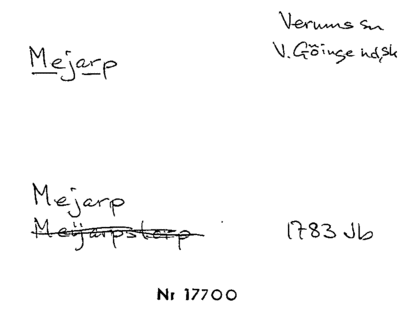 Mejarp
Verums sn
V. Göinge hd, sk
Mejarp
Meijarpstorp
1783 Jb
Nr 17700